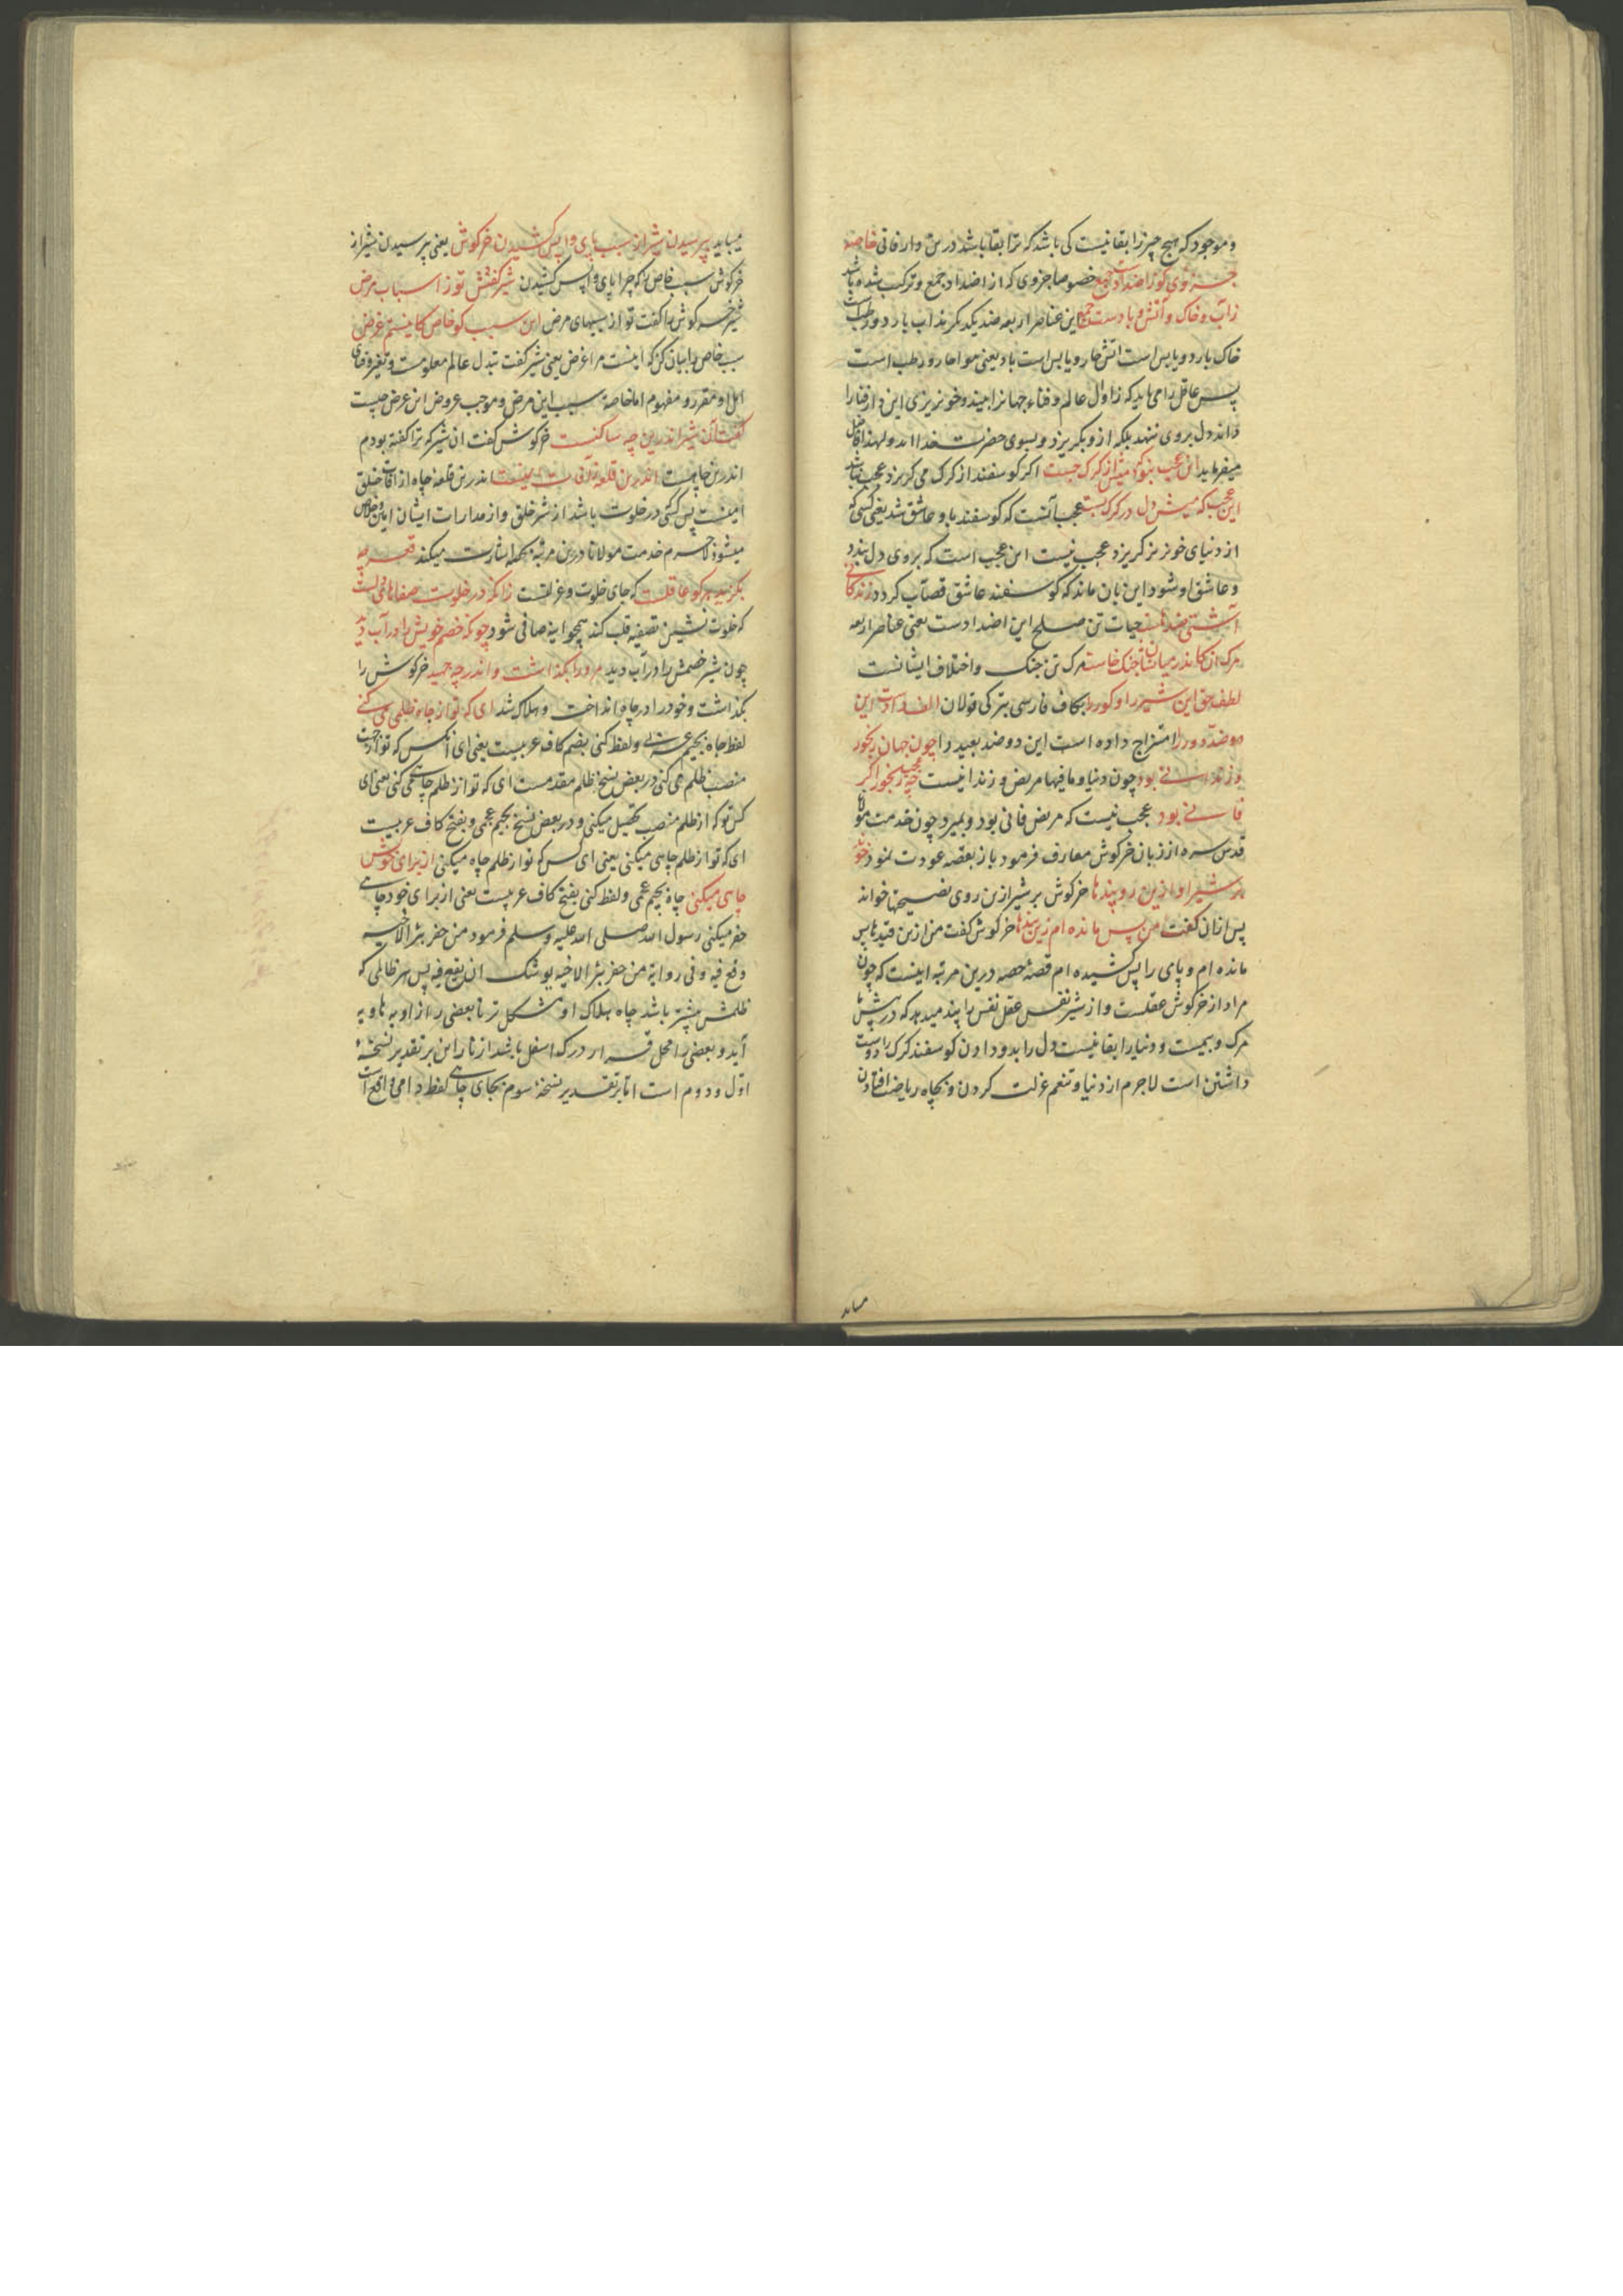 وموجود که هیچ چیز را بقا نیست کی باشد که ترا بقا باشد درین دار فانی خاصه
جزوی کو ز اضدادست جمع خصوصا جزوی که از اضداد جمع و ترکب شده باشد
ز آب و خاک و آتش و بادست جمع این عناصر اربعه ضد یکدیکرند اب بارد و رطب است
خاک بارد و یابس است اتش حار و یابس است باد یعنی هوا حار و رطب است
پس عاقل را می باید که زوال عالم و فناء جهانرا بیند و خونریزی این
داند دل بروی ننهد بلکه ازو بکریزد و بسوی حضرت خدا اید ولهذا
میفرماید این عجب نبود که میش از کرک جست اکر کوسفند از کرک می کریزد عجب نباشد
این عجب که میش دل در کرک بست عجب آنست که کوسفند باو عاشق شد یعنی کسی که
از دنیای خونریز کریزد عجب نیست این عجب است که بروی دل بندد
و عاشق او شود این بان ماند که کوسفند عاشق قصّاب کردد زندکانی
آشتی ضدهاست حیات تن صلح این اضدادست یعنی عناصر اربعه
مرک ان کاندر میانشان جنک خاست مرک تن جنک و اختلاف ایشانست
لطف حق این شیر را و کور را بکاف فارسی بترکی قولان الف دادست این
دو ضد دور را امتزاج داده است این دو ضد بعید را چون جهان رنجور
و زندانی بود چون دنیا و مافیها مریض و زندانیست چه عجب رنجور اکر
فانی بود عجب نیست که مریض فانی بود و بمیرد چون خدمت مولانا
قدس سره از زبان خرکوش معارف فرمود باز بقصه عودت نمود خواند
بر شیر او ازین رو پندها خرکوش بر شیر ازین روی نصیحتها خواند
پس ازان کفت من پس مانده ام زین بندها خرکوش کفت من ازین قیدها پس
مانده ام و پای را پس کشیده ام قصهٔ حصه درین مرتبه اینست که چون
مراد از خرکوش عقلست و از شیر نفس عقل نفس را پند میدهد که در پیش ما
مرک و بیمست و دنیا را بقا نیست دل را بدو دادن کوسفند کرک را دوست
داشتن است لاجرم از دنیا و تنعم عزلت کردن و بچاه ریاضت افتادن
میباید
میباید پرسیدن شیر از سبب پای واپس کشیدن خرکوش یعنی پرسیدن شیر از
خرکوش سبب خاص را که چرا پای واپس کشیدن شیر کفتش تو ز اسباب مرض
شیر خرکوش را کفت تو از سببهای مرض این سبب کو خاص کاینستم غرض
سبب خاص را بیان کن که اینست مرا غرض یعنی شیر کفت تبدل عالم معلومست و تغیر و فنای
اهل او مقرر و مفهوم اما خاصهٔ سبب این مرض و موجب عروض این عرض چیست
کفت آن شیر اندرین چه ساکنست خرکوش کفت ان شیر که ترا کفته بودم
اندرین چاهست اندرین قلعه ز آفات ایمنست اندرین قلعه چاه از افات خلق
امینست پس کسی در خلوت باشد از شر خلق و از مدارات ایشان امین و خلاص
میشود لاجرم خدمت مولانا درین مرتبه بحکمه اشارت میکند قعر چه
بکزید هر کو عاقلست که جای خلوت و عزلتست زانکه در خلوت صفاهای دلست
که خلوت نشین تصفیهٔ قلب کند همچو اینه صافی شود چونکه خصم خویش را در آب دید
چون شیر خصمش را در آب دید مر ورا بکذاشت و اندر چه جهید خرکوش را
بکذاشت و خود را در چاه انداخت و هلاک شد ای که تو از جاه ظلمی می کنی
لفظ جاه بجیم عربی و لفظ کنی بضم کاف عربیست یعنی ای انکس که تو از جهت
منصب ظلم می کنی در بعض نسخ ظلم مقدمست ای که تو از ظلم جاهی می کنی یعنی ای
کس تو که از ظلم منصب تحصیل میکنی و در بعض نسخ بجیم عجمی و بفتح کاف عربیست
ای که تو از ظلم چاهی میکنی یعنی ای کس که تو از ظلم چاه میکنی از برای خویش
چاهی میکنی چاه بجیم عجمی و لفظ کنی بفتح کاف عربیست یعنی از برای خود چاهی
حفر میکنی رسول الله صلی الله علیه وسلم فرمود من حفر بئرا لاخیه
وقع فیه و فی روایة من حفر بئرا لاخیه یوشک ان یقع فیه پس هر ظالمی که
ظلمش بیشتر باشد چاه هلاک او مشکل تر تا بعضی را زاویه هاویه
آید و بعضی را محل قرار درک اسفل باشد از نار این بر تقدیر نسخهٔ
اوّل و دوم است امّا بر تقدیر نسخهٔ سوم بجای چاهی لفظ دامی واقع است